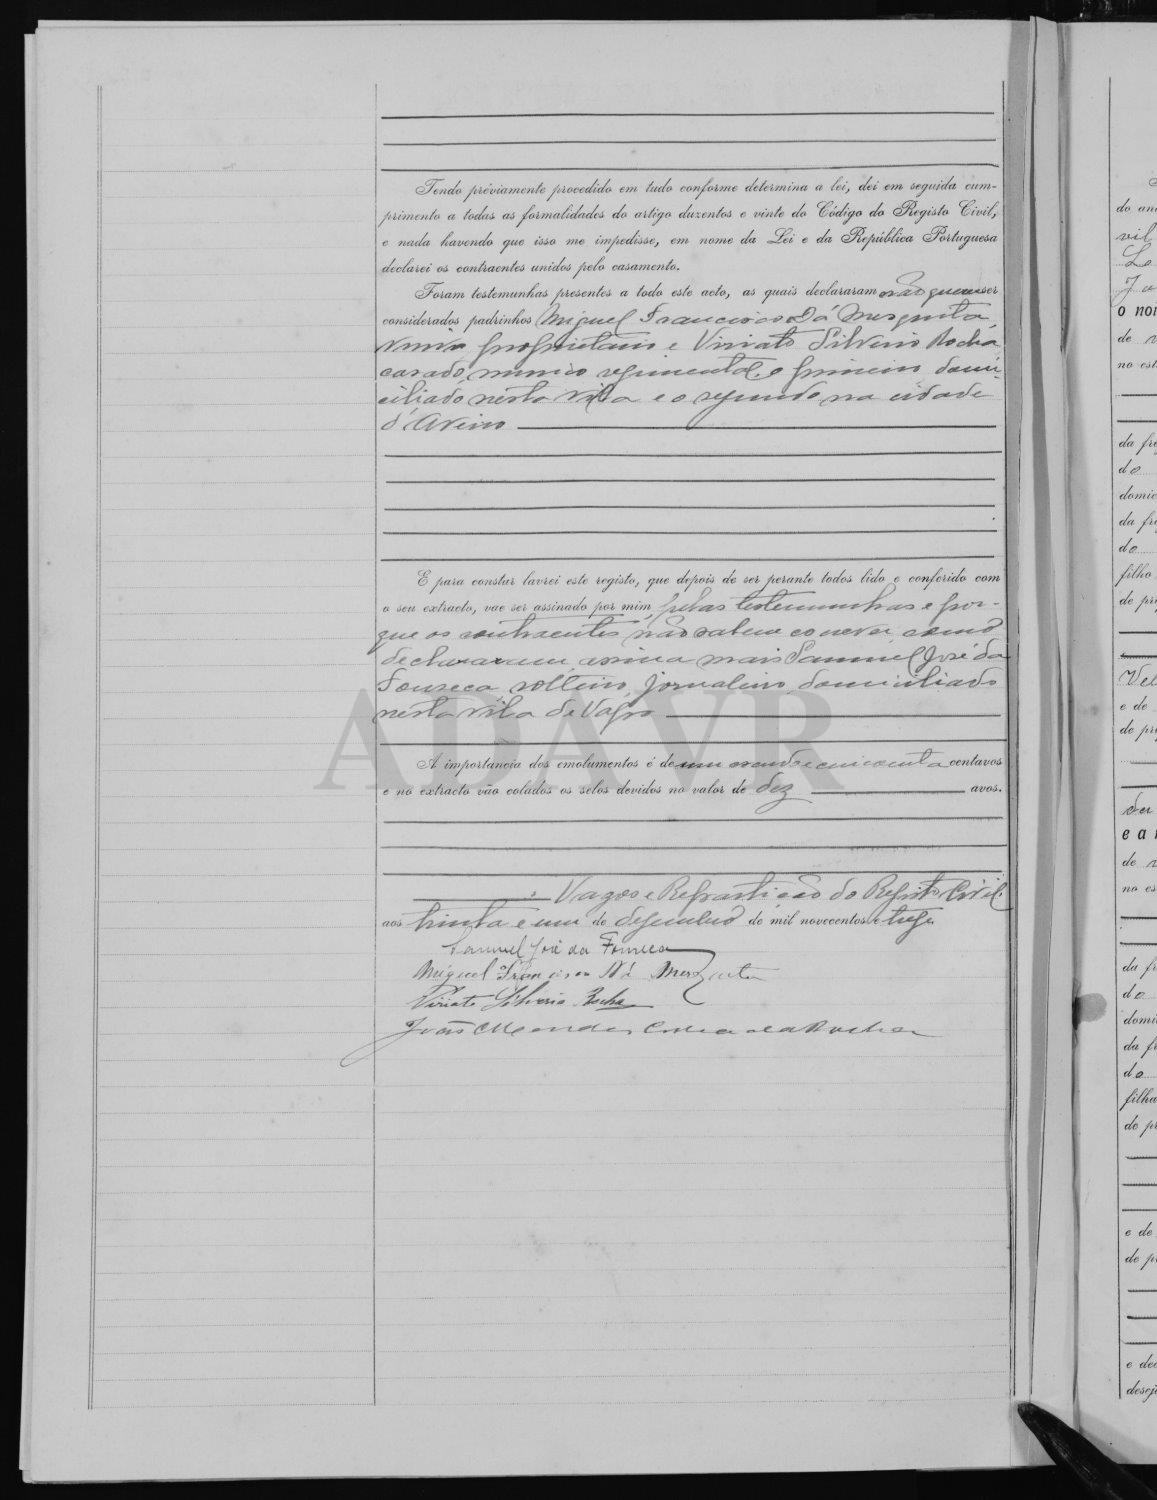 Tendo préviamente procedido em tudo conforme determina a lei, dei em seguida cum-
primento a todas as formalidades do artigo duzentos e vinte do Código do Registo Civil,
e nada havendo que isso me impedisse, em nome da Lei e da República Portuguesa
declarei os contraentes unidos pelo casamento.
Foram testemunhas presentes a todo este acto, as quais declararam não querem ser
considerados padrinhos Miguel Francisco Sá Mesquita,
viuvo, proprietario e Viriato Silverio Rocha
casado, musico regimental, o primeiro domi-
ciliado nesta vila e o segundo na cidade
d'Aveiro
E para constar lavrei este registo, que depois de ser perante todos lido e conferido com
o seu extracto, vae ser assinado por mim, pelas testemunhas e por-
que os contraentes não sabem escrever, como
declararam, assina mais Samuel José da
Fonseca, solteiro, jornaleiro, domiciliado
nesta vila de Vagos
ADAVR
A importancia dos emolumentos é de um escudo e cincoenta centavos
e no extracto vão colados os selos devidos no valor de dez avos.
Vagos e Repartição do Registo Civil,
aos trinta e um de dezembro de mil novecentos e treze.
Samuel José da Fonseca
Miguel Francisco Sá Mesquita
Viriato Silverio Rocha
João Mendes Correia da Rocha
do an
vil
o no
de
no est
da fre
do
domic
da fre
do
filho
de pr
e de
de pr
e a
de
no es
da f
do
domi
da f
do
filha
de p
e de
de p
e de
desej